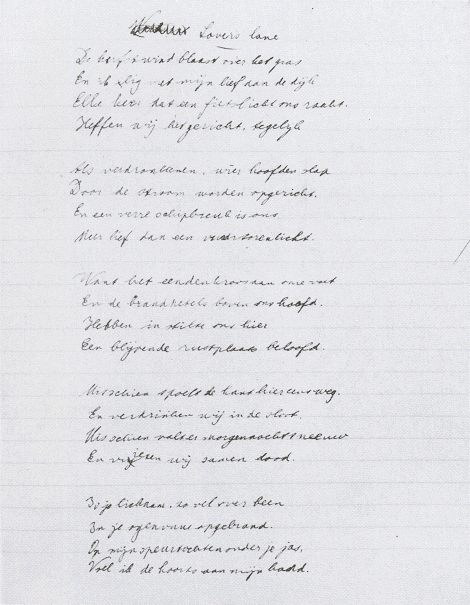 Lovers lane
De herfstwind blaast over het gras
En ik lig met mijn lief aan de dijk
Elke keer dat een fietslicht ons raakt.
Heffen wij het gezicht, tegelijk
Als verdronkenen, wier hoofden slap
Door de stroom worden opgericht.
En een verre schipbreuk is ons
Meer lief dan een vuurtorenlicht.
Want het eendenkroos aan onze voet
En de brandnetels boven ons hoofd.
Hebben in stilte ons hier
Een blijvende rustplaats beloofd.
Misschien spoelt de kant hier eens weg.
En verdrinken wij in de sloot.
Misschien valt er morgennacht sneeuw
En vriezen wij samen dood.
Zo je lichaam, zo vel over been
Zo je ogen opgebrand.
Op mijn speurtochten onder je jas.
Voel ik de koorts aan mijn hand.